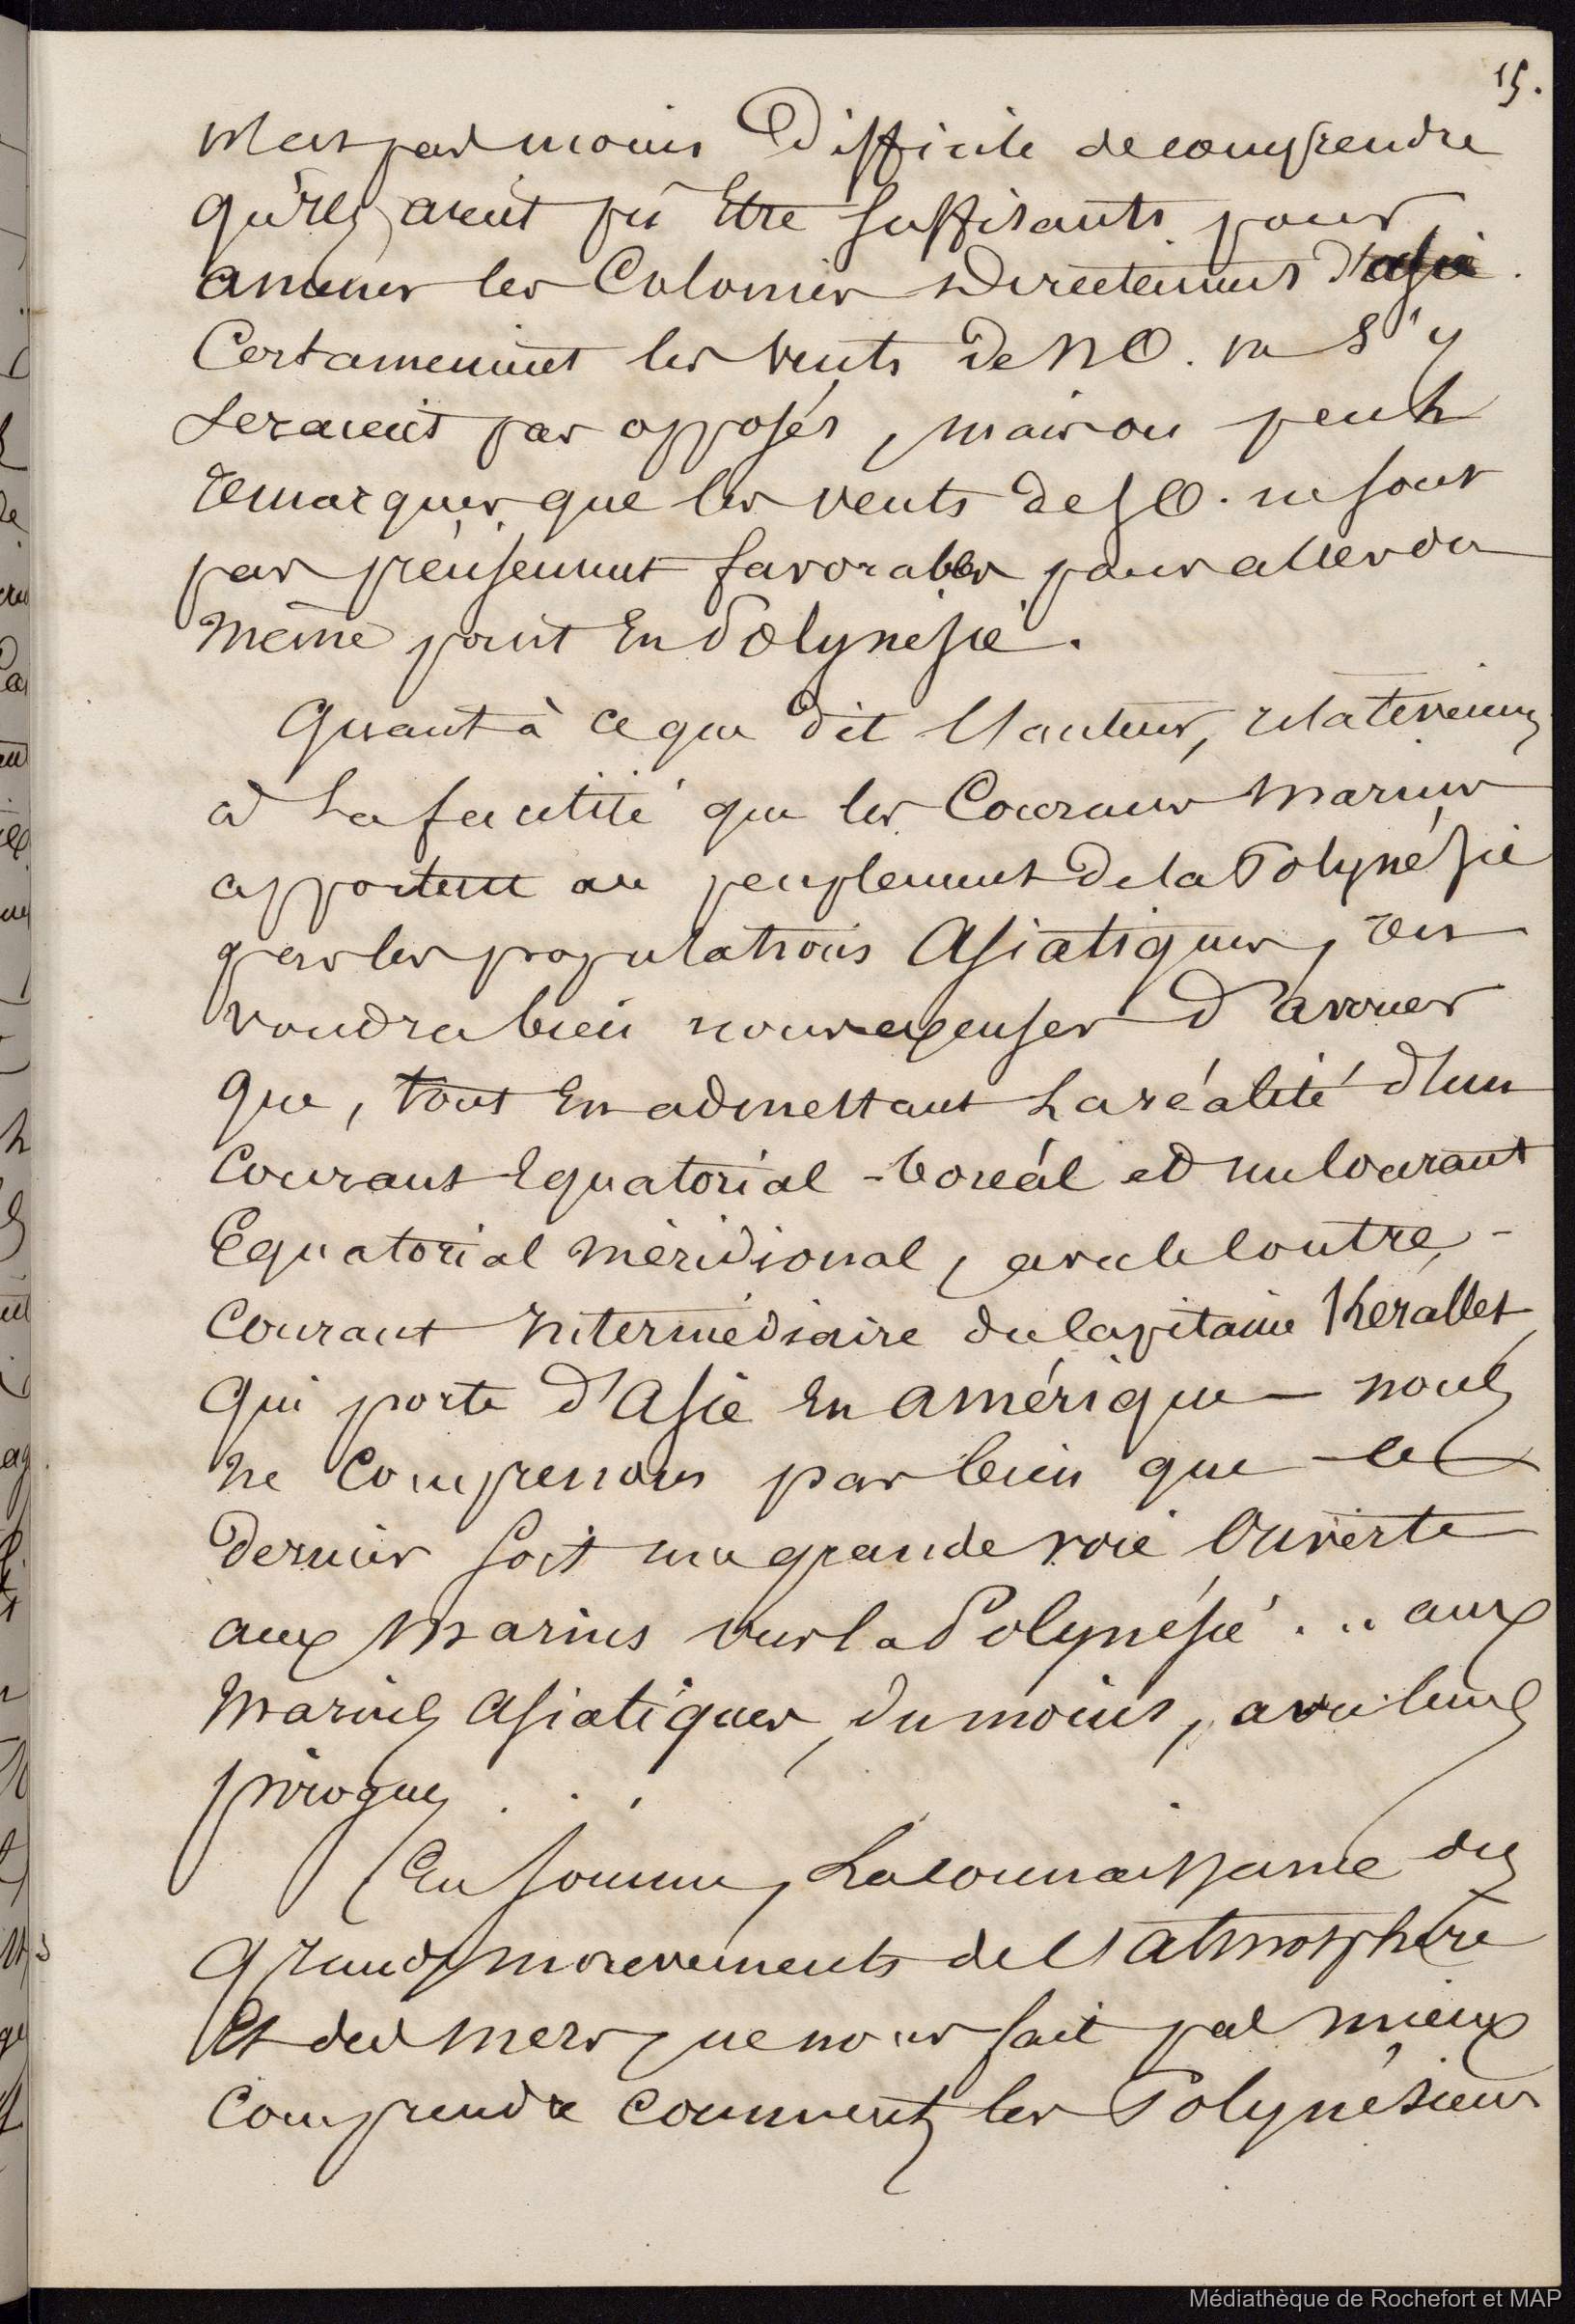 15.
n'est pas moins difficile de comprendre
qu'ils aient pû être suffisants pour
amener les Colonies directement d'asie.
Certainement les vents de NO. ne s'y
seraient pas opposés, mais on peut
remarquer que les vents de SO. ne sont
pas précisement favorables pour aller du
même point En Polynésie.
Quant à ce que dit l'auteur, relativement
à la facilité que les Courants marins
apportent au peuplement de la Polynésie
par les populations Asiatiques, on
voudra bien nous excuser d'avouer
que, tout En admettant la réalité d'un
Courant Equatorial-boréal et d'un Courant
Equatorial méridional, avec le Contre-
Courant intermédiaire du Capitaine Kerallet
qui porte d'Asie En amérique — nous
ne Comprenons pas bien que ce
dernier soit une grande voie Ouverte
aux marins vers la Polynésie ... aux
marins Asiatiques, du moins, avec leurs
pirogues ...
En somme, La connaissance des
grands mouvements de l'atmosphère
Et des mers, ne nous fait pas mieux
Comprendre Comment les Polynésiens
Médiathèque de Rochefort et MAP